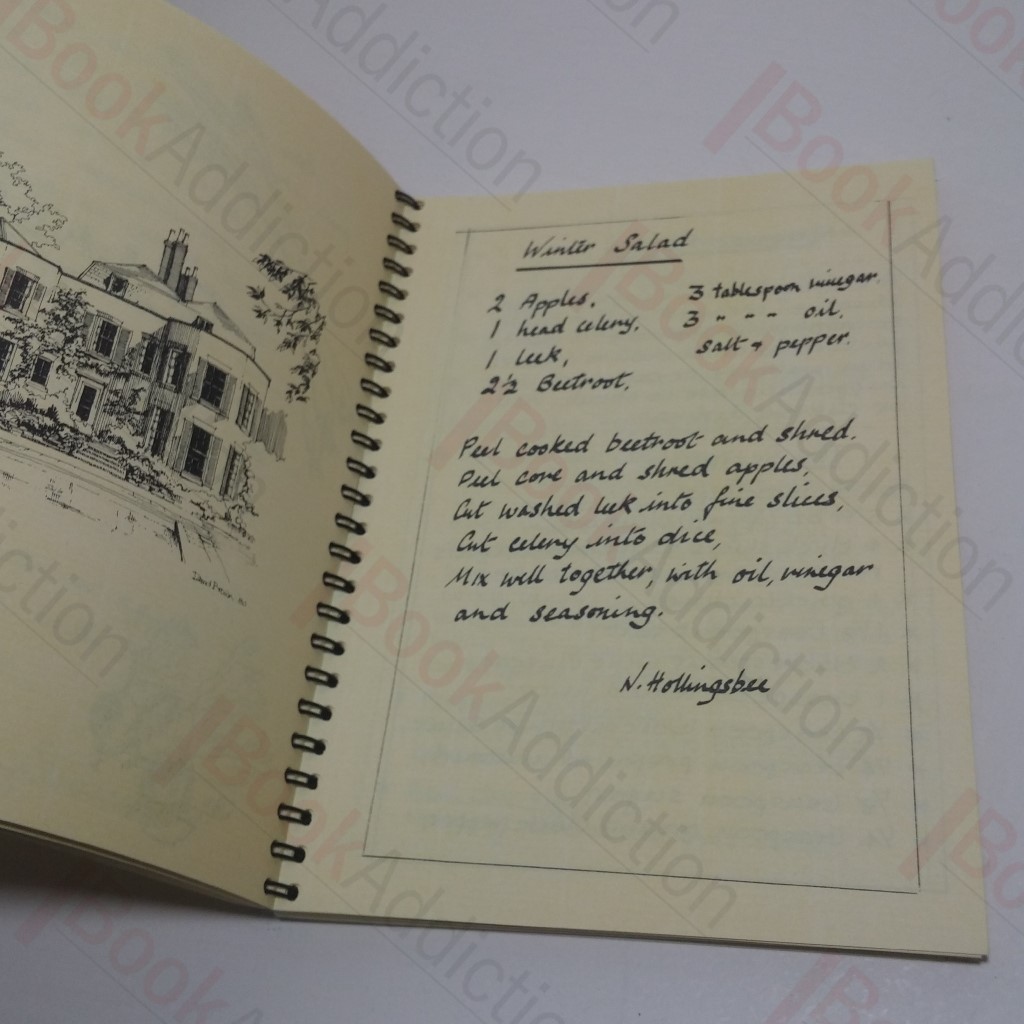 Winter Salad
2 Apples,
1 head celery,
1 leek,
2½ Beetroot,
3 tablespoon vinegar.
3 " " " oil,
Salt + pepper.
Peel cooked beetroot and shred.
Peel core and shred apples,
Cut washed leek into fine slices,
Cut celery into dice,
Mix well together, with oil, vinegar
and seasoning.
N. Hollingsbee
BookAddiction